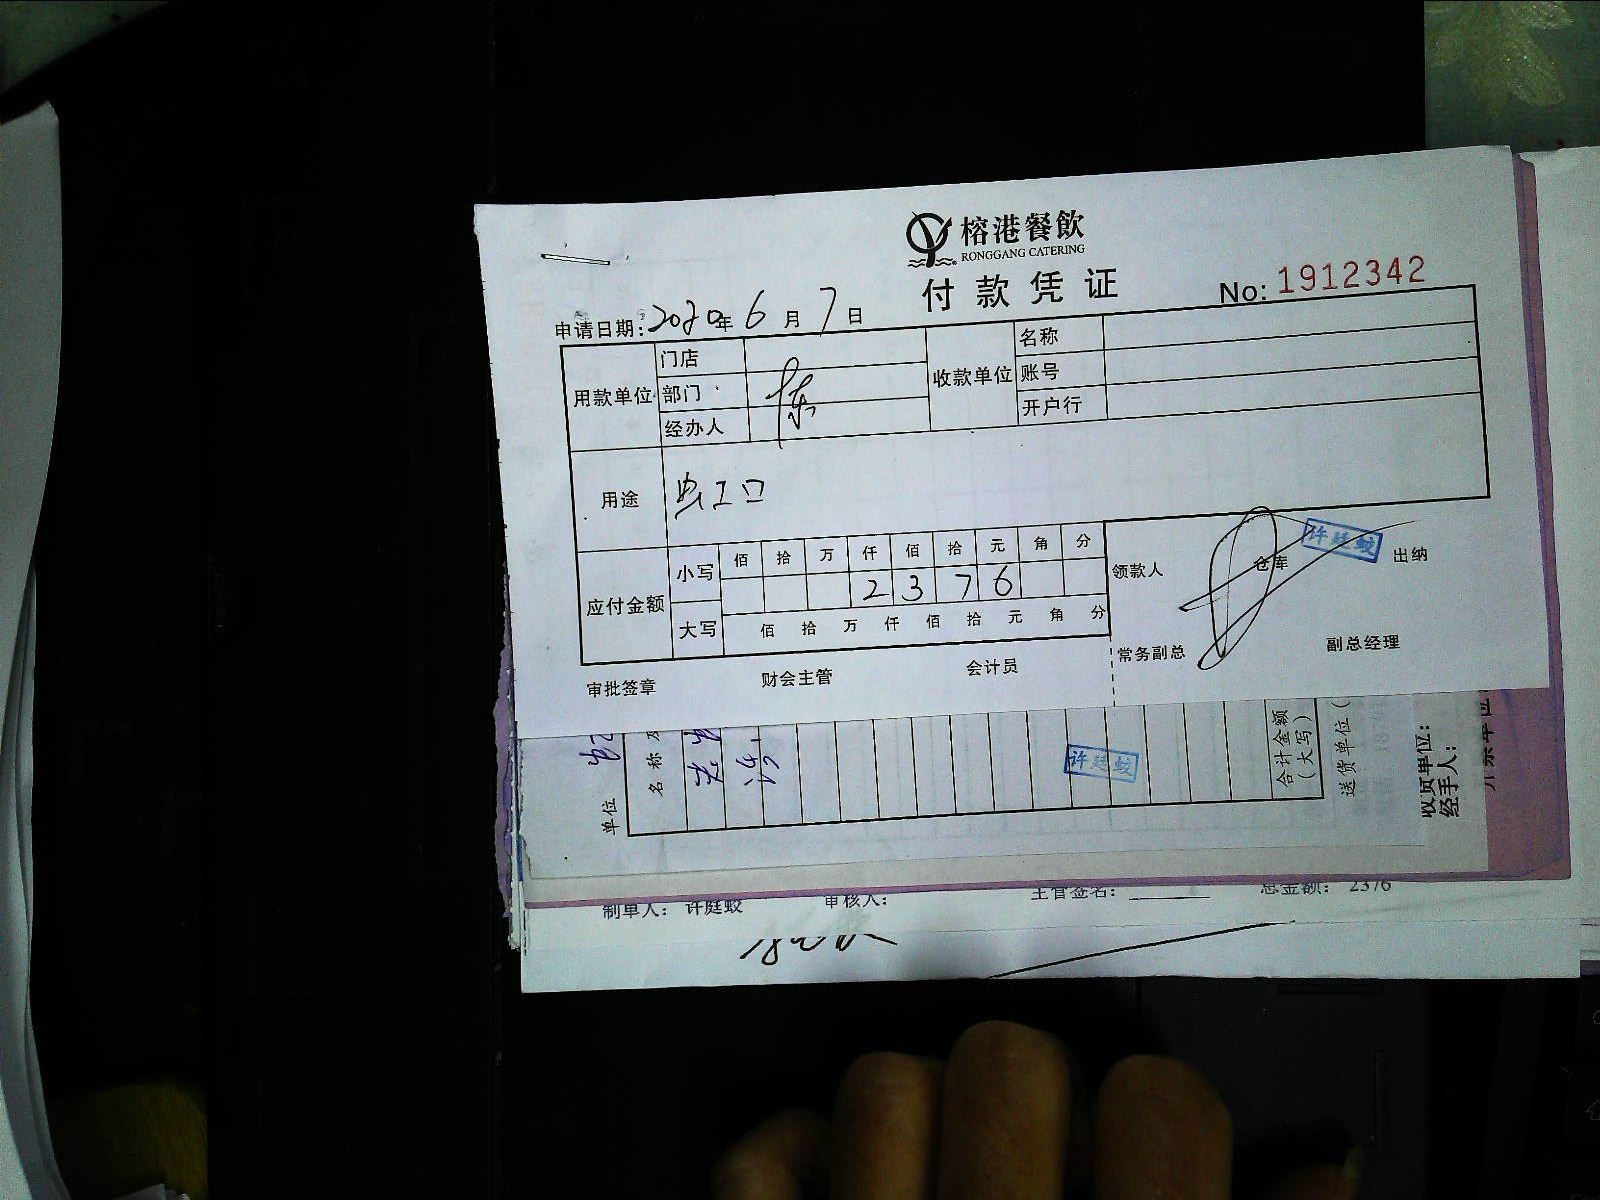 榕港餐飲
RONGGANG CATERING
付款凭证
No: 1912342
申请日期: 2020年 6 月 7 日
用款单位 门店 收款单位 名称
部门 账号
经办人 陈 开户行
用途 虫工口
应付金额 小写 佰 拾 万 仟 佰 拾 元 角 分
2 3 7 6
大写 佰 拾 万 仟 佰 拾 元 角 分
领款人 仓库 许廷蛟 出纳
常务副总 副总经理
审批签章 财会主管 会计员
单位
名称
许廷蛟
合计金额
(大写)
送货单位(
收货单位:
经手人:
制单人: 许庭蛟 审核人: 主管签名: 总金额: 2376